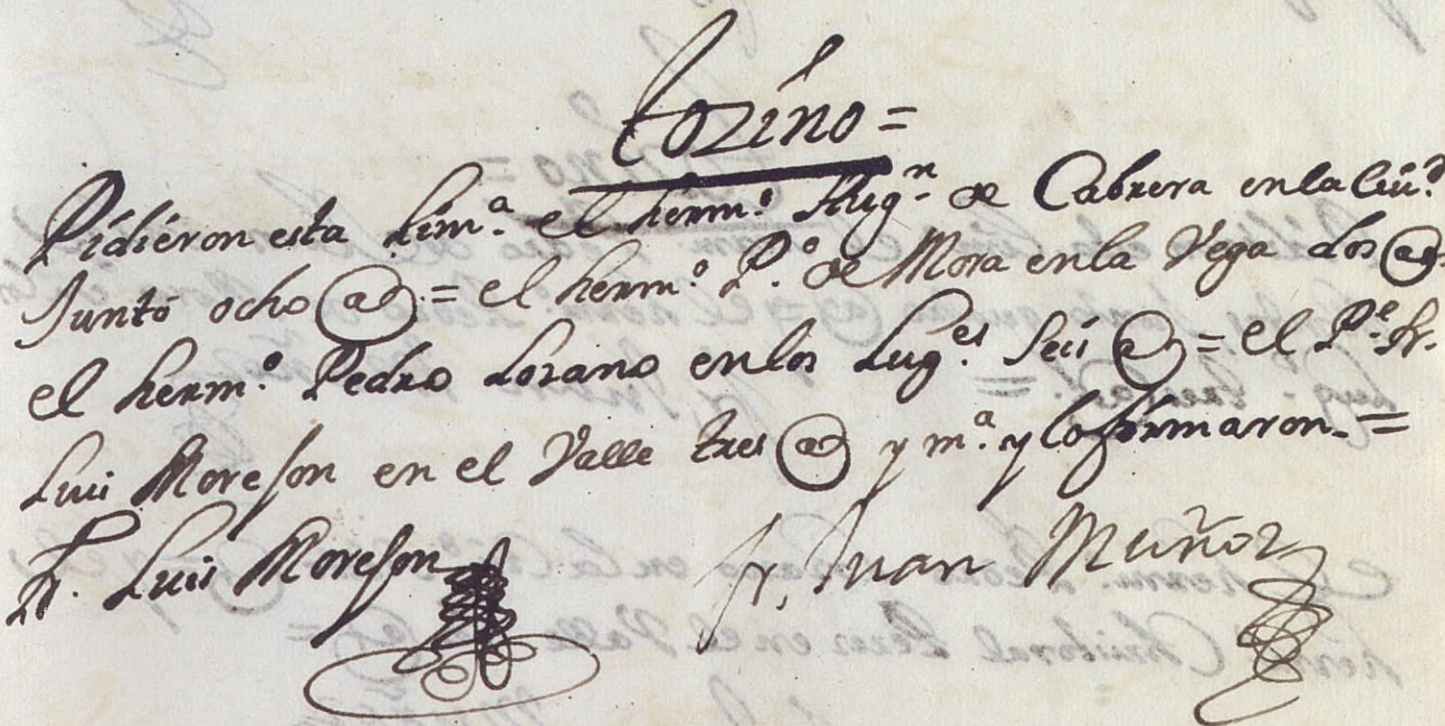 tozino =
Pidieron esta lim.ª el herm.º Aug.n de Cabrera en la Ciu.d
Junto ocho @ = el herm.º P.º de Mora en la Vega dos @ =
el herm.º Pedro Lozano en los Lug.es Seis @ = el P.e fr.
Luis Moreson en el Valle tres @ y m.ª y lo firmaron =
fr. Luis Moreson
fr. Juan Muñoz